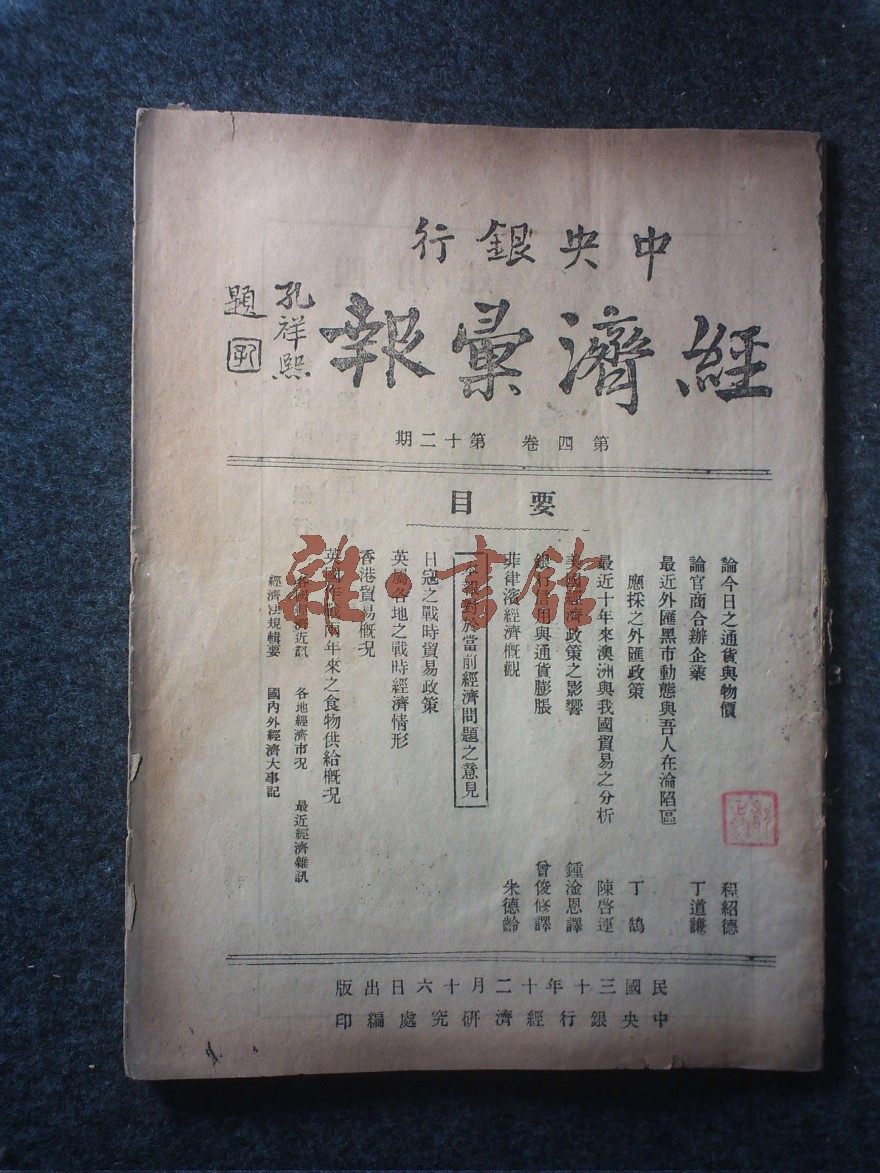 中央銀行
經濟彙報
孔祥熙
題
第四卷 第十二期
要目
論今日之通貨與物價 程紹德
論官商合辦企業 丁道謙
最近外匯黑市動態與吾人在淪陷區
應採之外匯政策 丁鵠
最近十年來澳洲與我國貿易之分析 陳啓運
美國經濟政策之影響 鍾淦恩譯
銀行信用與通貨膨脹 曾俊修譯
菲律濱經濟概觀 朱德齡
本報對於當前經濟問題之意見
日寇之戰時貿易政策
英屬各地之戰時經濟情形
香港貿易概況
英國作戰兩年來之食物供給概況
各國經濟近訊 各地經濟市況 最近經濟雜訊
經濟法規輯要 國內外經濟大事記
民國三十年十二月十六日出版
中央銀行經濟研究處編印
雜·書館